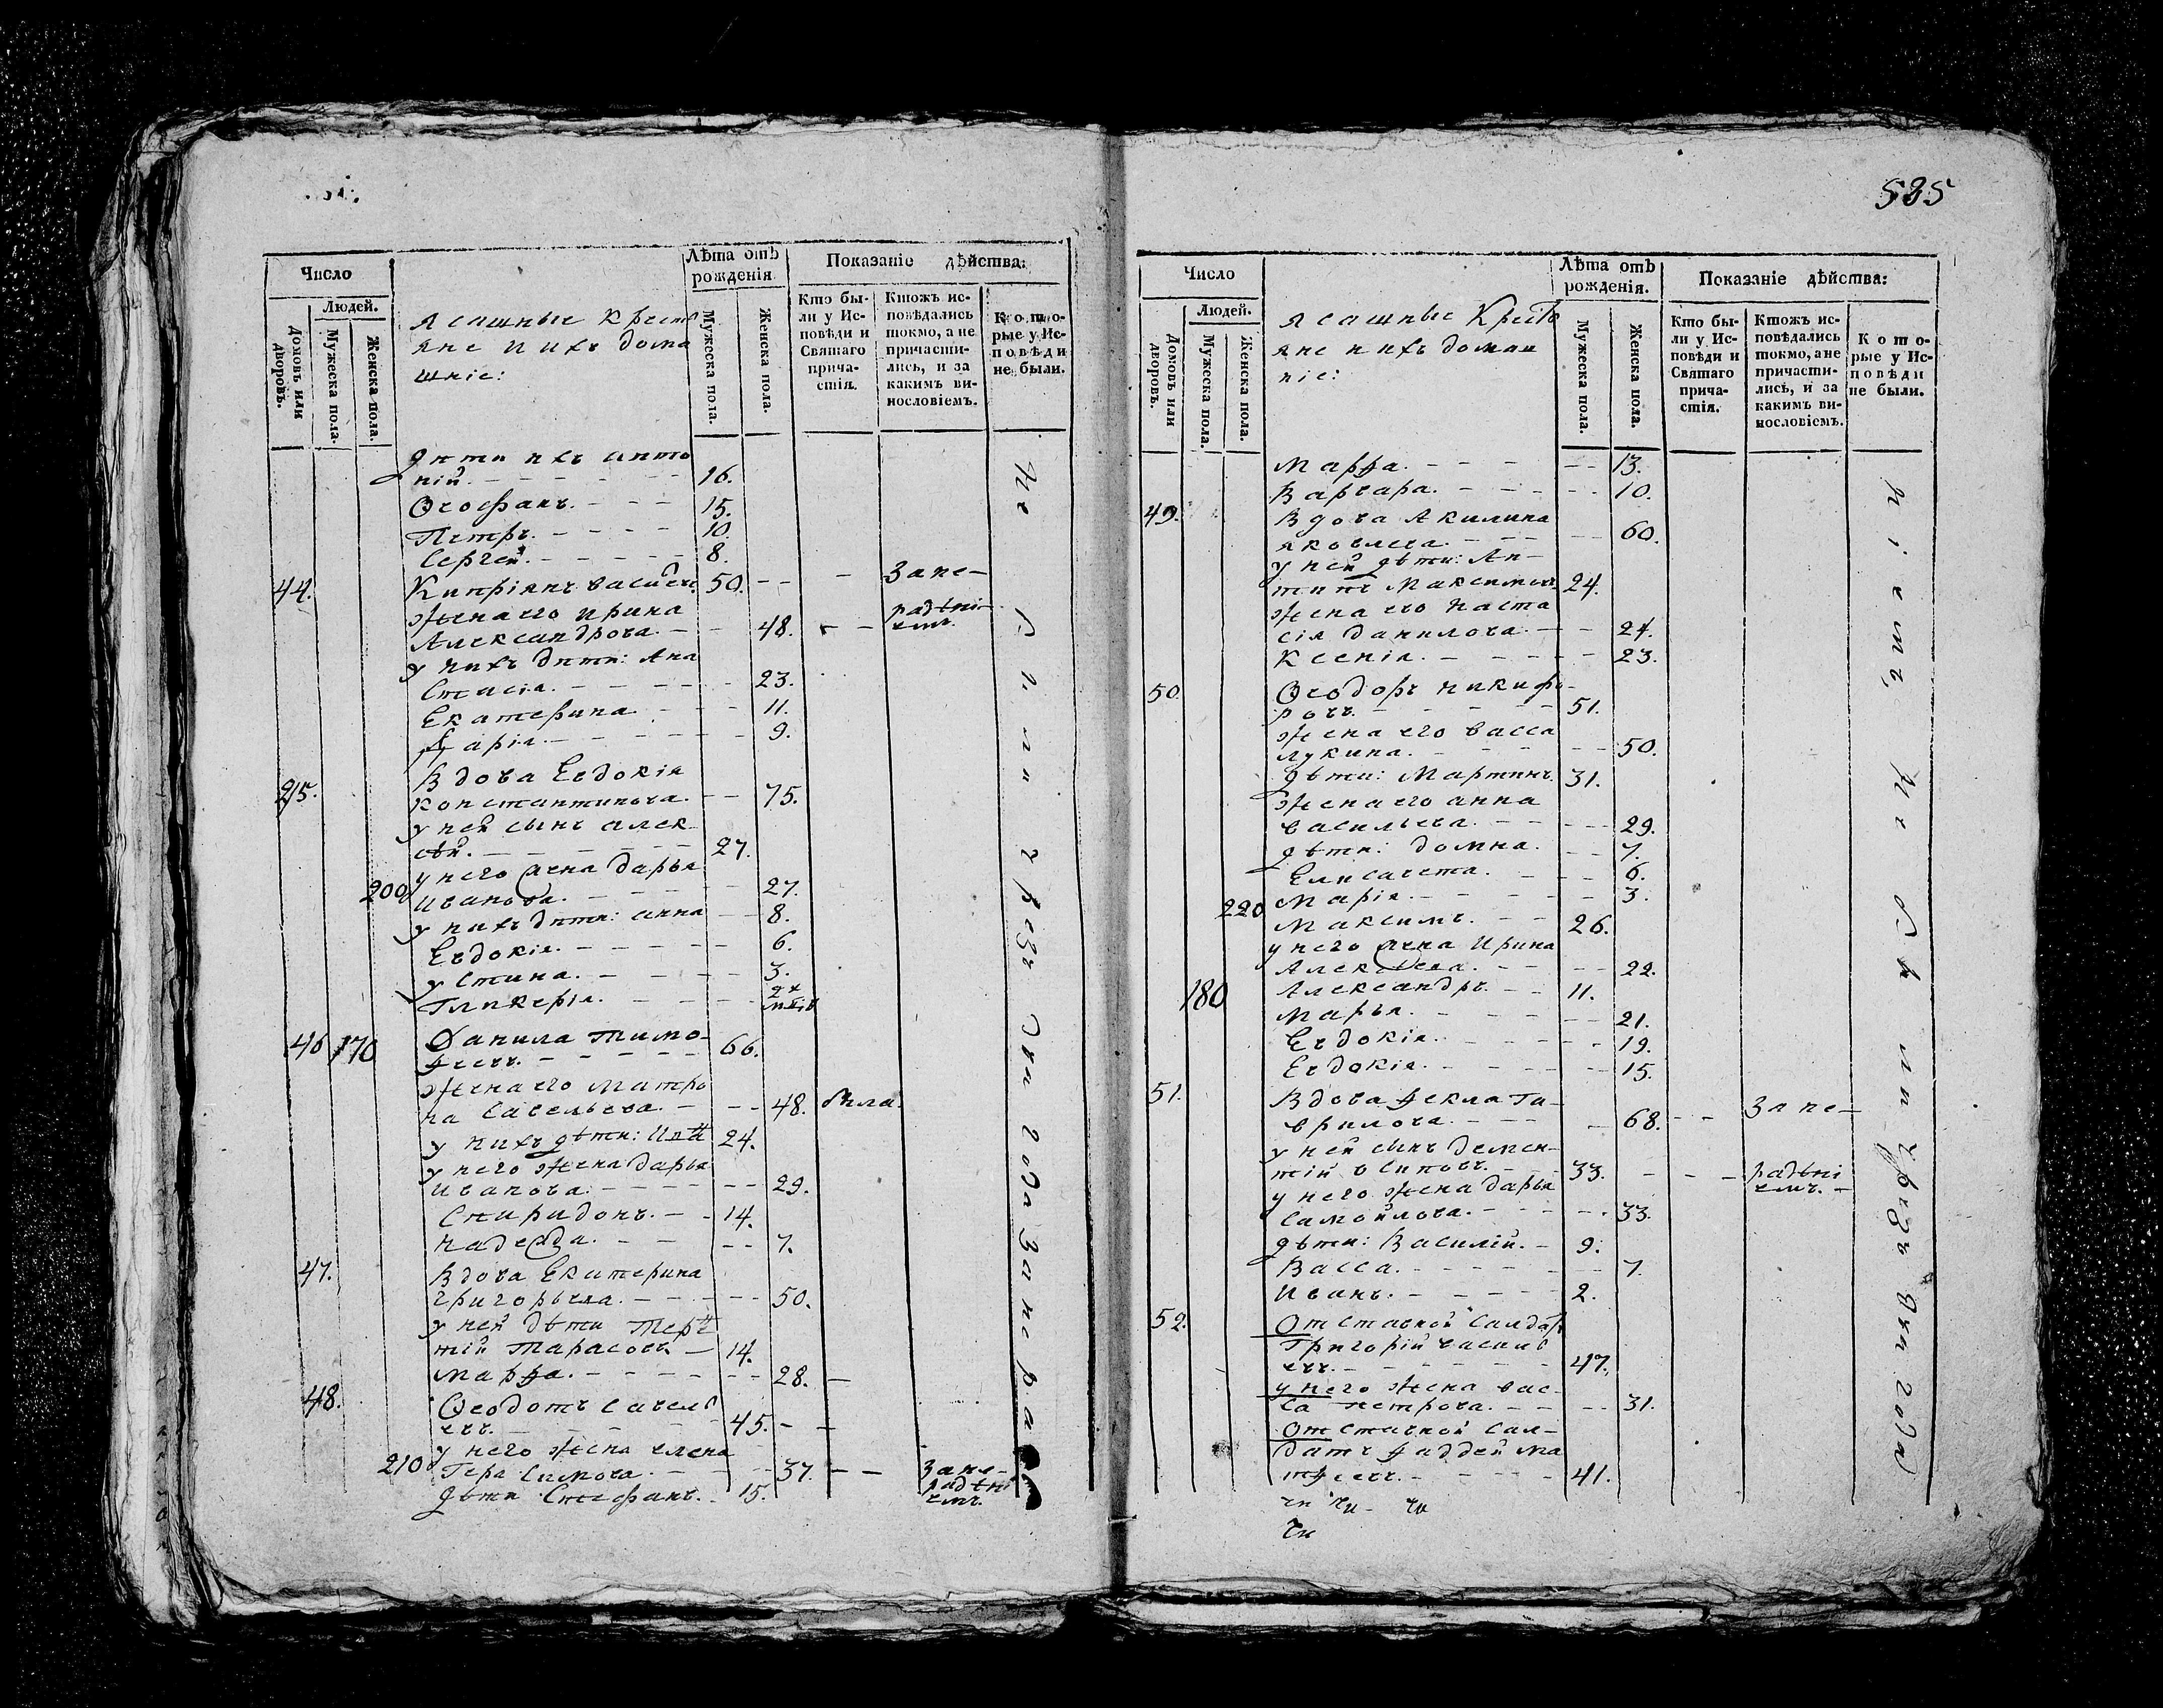 Число
Людей.
Домовъ или дворовъ.
Мужеска пола.
Женска пола.
Ясашные крестъ
яне ихъ дома
шніе:
Лѣта отъ
рожденія
Мужеска пола.
Женска пола.
Показаніе дѣйства:
Кто бы-
ли у Ис-
повѣди и
Святаго
прича-
стія.
Ктожъ ис-
повѣдались
токмо, а не
причасти-
лись, и за
какимъ ви-
нословіемъ.
Кото-
рые у Ис-
повѣди
не были.
дѣти ихъ анто
ній. 16.
Ѳеофанъ. 15.
Петръ. 10.
Сергей. 8.
44. Кипріянъ васильев. 50. За не-
жена его Ирина
Александрова. 48. радѣні-
емъ.
У нихъ дѣти: Ана
стасіа. 23.
Екатерина 11.
Дарія. 9.
45. Вдова Евдокія
константинова. 75.
у ней сынъ алек
сѣй. 27.
у него жена дарья
200 Иванова. 27.
у нихъ дѣти: анна 8.
Евдокія. 6.
Устина. 3.
Гликерія. 2
46 170 Данила тимо-
ѳеевъ. 66.
жена его матро
на Савельева. 48. была.
у нихъ дѣти: 24.
у него жена дарья
Иванова. 29.
Спиридонъ. 14.
надежда. 7.
47. Вдова Екатерина
григорьева. 50.
у ней дѣти Терен
тій Тарасовъ. 14.
марѳа. 28.
48. Ѳеодотъ савель
евъ. 45.
у него жена елена
210 Герасимова. 37. За не-
радѣні
емъ.
дѣти Стефанъ. 15.
Не были чрезъ два года за нера
535
Число
Людей.
Домовъ или дворовъ.
Мужеска пола.
Женска пола.
Ясашные Кресть
яне ихъ домаш
ніе:
Лѣта отъ
рожденія.
Мужеска пола.
Женска пола.
Показаніе дѣйства:
Кто бы-
ли у Ис-
повѣди и
Святаго
прича-
стія.
Ктожъ ис-
повѣдались
токмо, а не
причасти-
лись, и за
какимъ ви-
нословіемъ.
Кото-
рые у Ис-
повѣди
не были.
Марѳа. 13.
Варвара. 10.
49. Вдова Акилина
яковлева. 60.
у ней дѣти: Ан-
типъ Максимовъ 24.
жена его наста
сія данилова. 24.
Ксенія. 23.
50. Ѳеодоръ никифо-
ровъ. 51.
жена его васса
лукина. 50.
дѣти: Мартинъ. 31.
жена его анна
васильева. 29.
дѣти: домна. 7.
Елисавета. 6.
Марія. 3.
220 Максимъ. 26.
у него жена Ирина
Алексѣева. 22.
180 Александръ. 11.
марья. 21.
Евдокія. 19.
Евдокія. 15.
51. Вдова Ѳекла Га-
врилова. 68. За не-
у ней сынъ демен-
тій 33. радѣні
емъ.
у него жена дарья
самойлова. 33.
дѣти: Василій. 9.
Васса. 7.
Иванъ. 2.
52. Отставной Салдатъ
Григорій васил
евъ. 47.
у него жена вас-
са петрова. 31.
Отставной Сал-
датъ Ѳаддей ма
тѳеевъ. 41.
Не были чрезъ два года